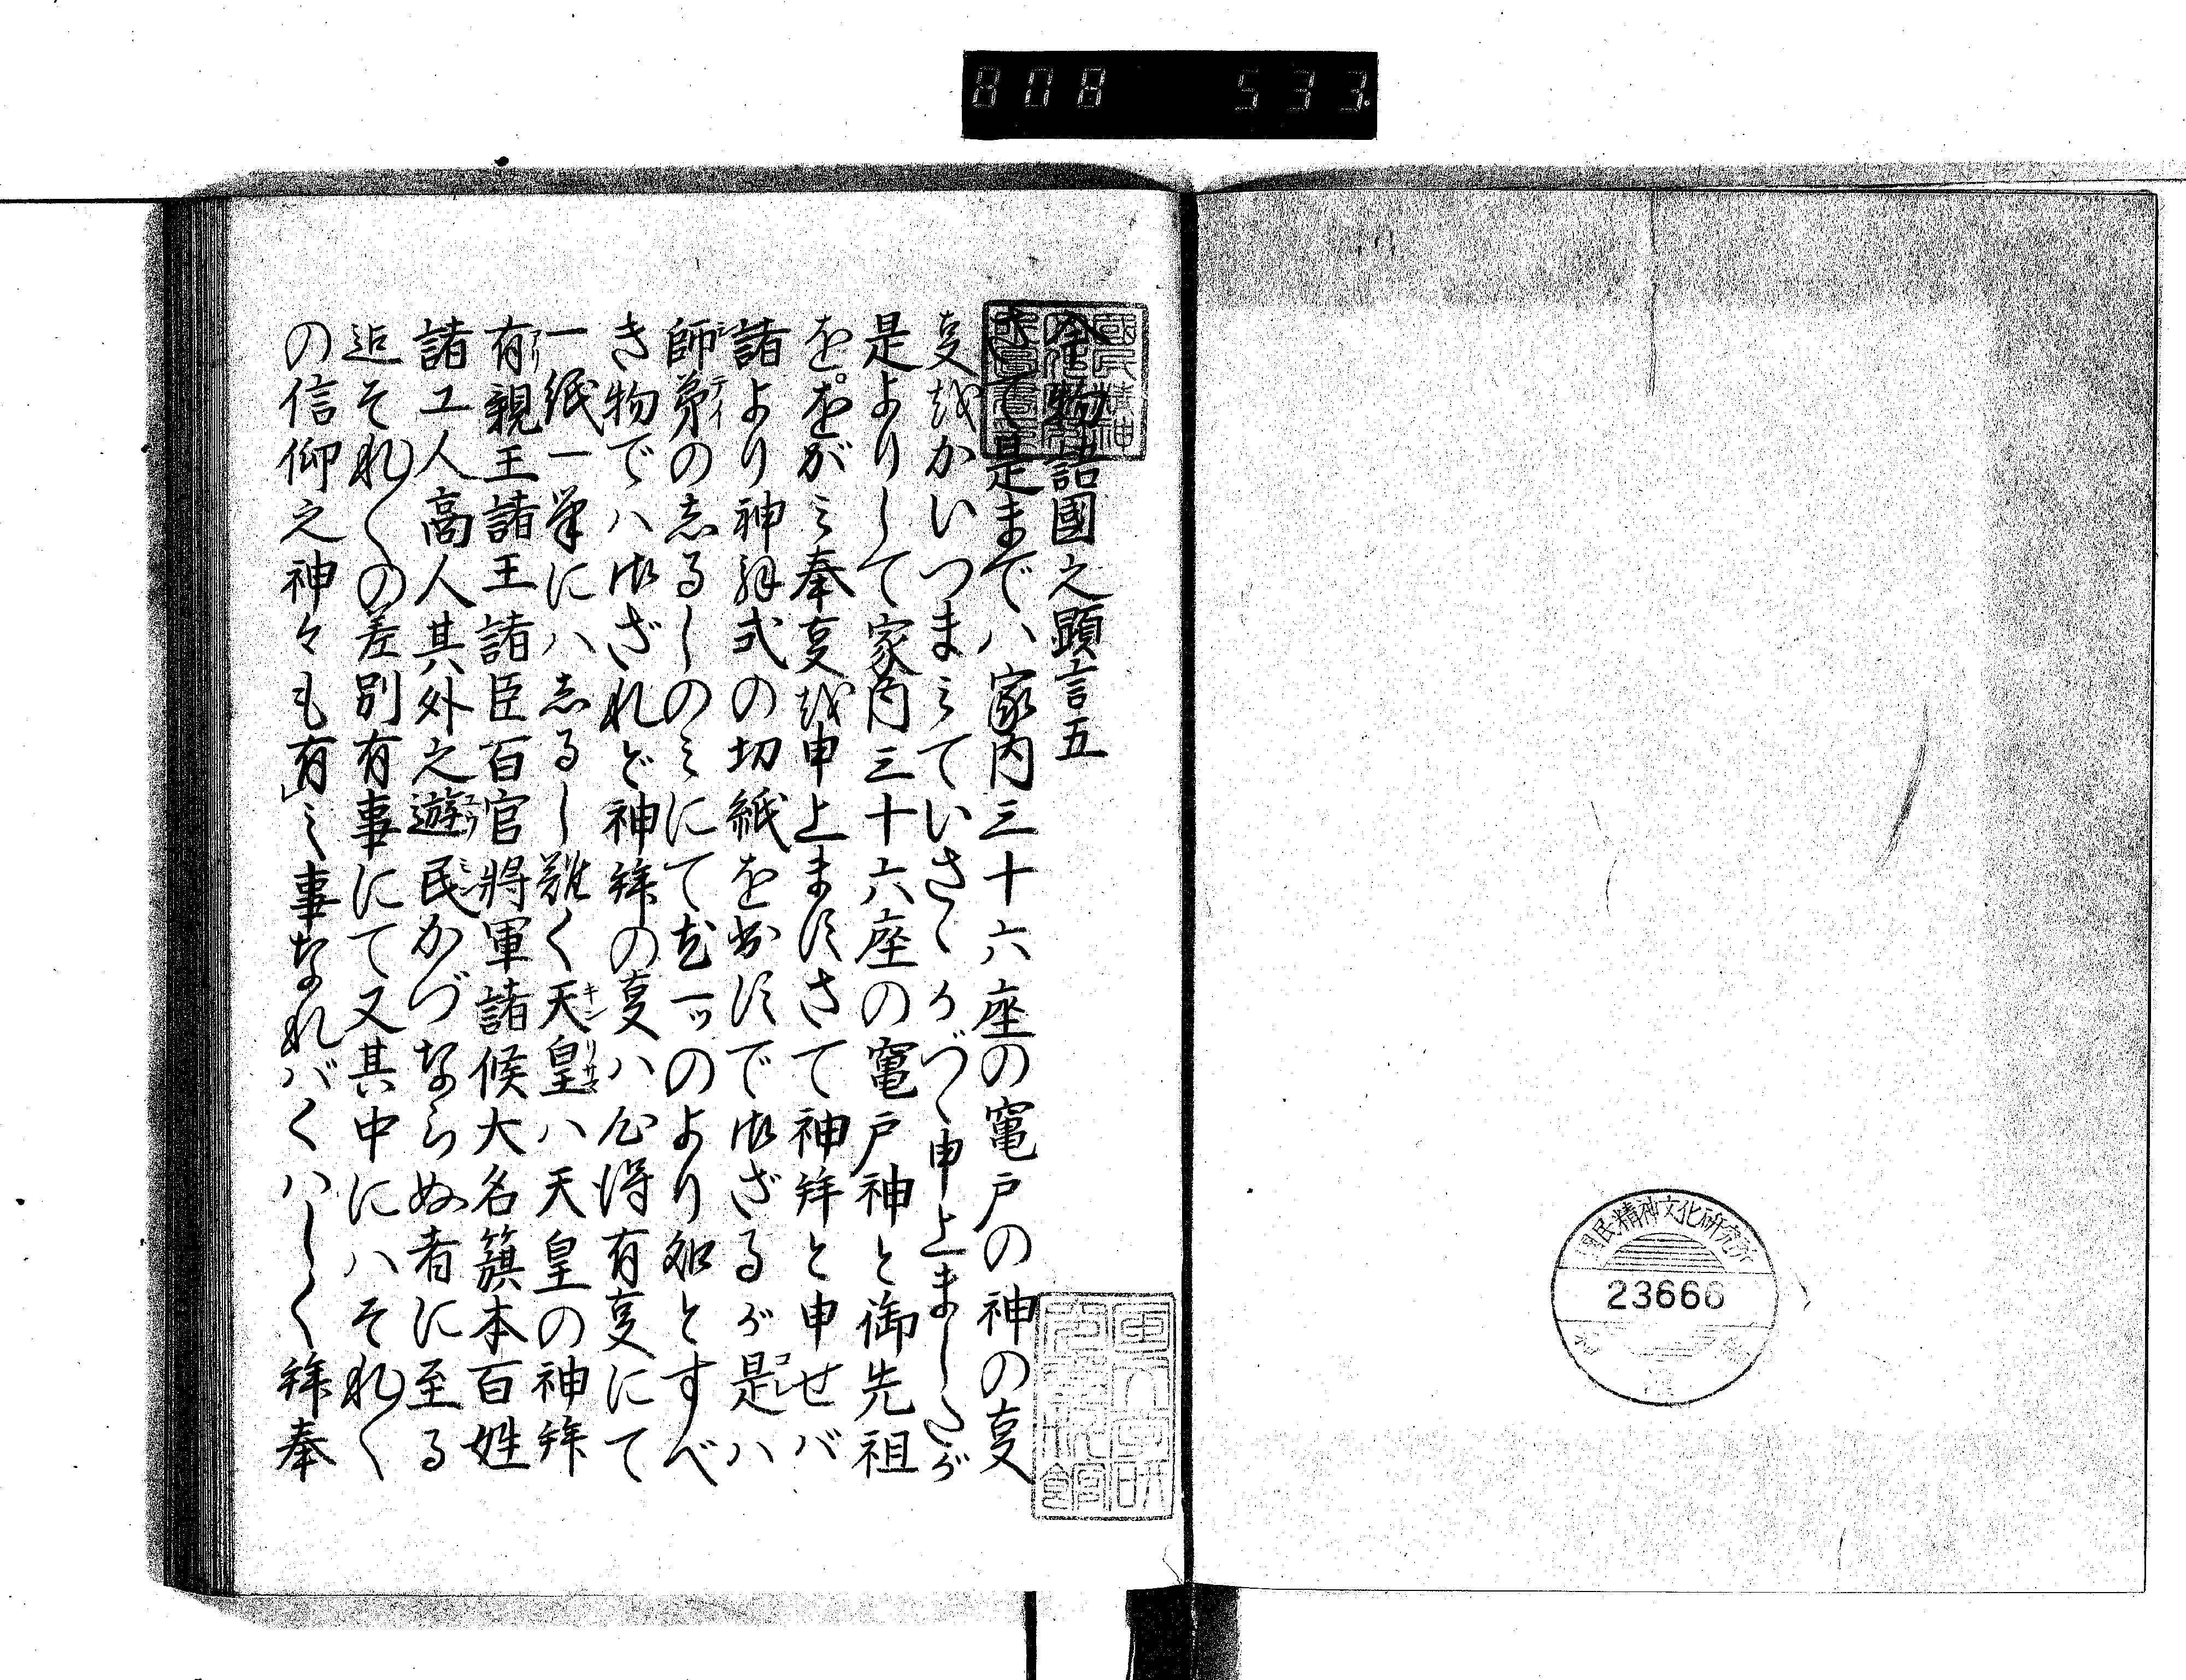 808 533
全物語國之顕言五
さて是までハ家内三十六座の竃戸の神の㕝
㕝越かいつまミていさゝかづゝ申上ましたが
是よりして家内三十六座の竃戸神と御先祖
ををがミ奉㕝越申上ます扨さて神拜と申せバ
諸より神拜式の切紙を出すで御ざるが是ハ
師弟のしるしのミにて一ッのより処とすべ
き物でハ御ざれど神拜の㕝ハ心得有㕝にて
一紙一筆にハしるし難く天皇ハ天皇の神拜
有親王諸王諸臣百官将軍諸候大名籏本百姓
諸工人商人其外之遊民かづならぬ者に至る
迠それ〱の差別有事にて又其中にハそれ〱
の信仰之神々も有之事なれバくハしく拜奉
國民精神文化研究所
23666